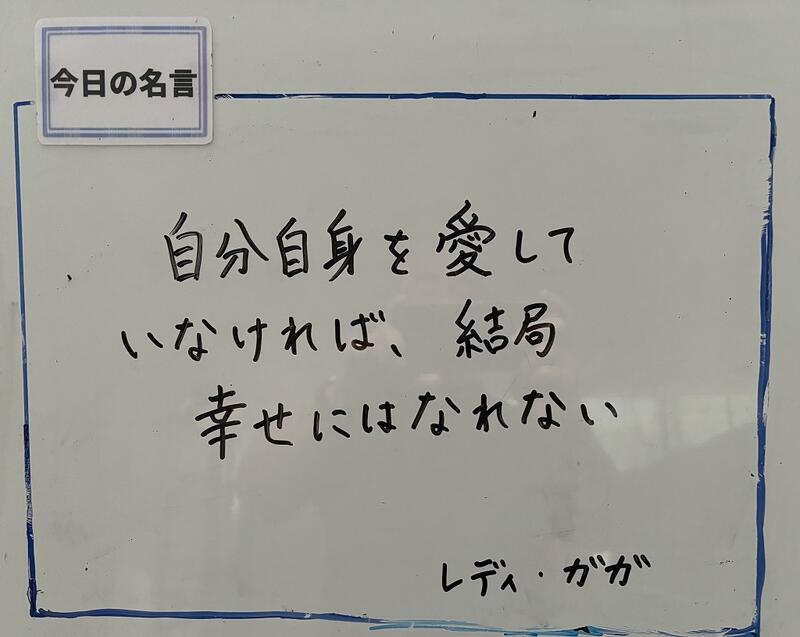 今日の名言
自分自身を愛して
いなければ、結局
幸せにはなれない
レディ・ガガ